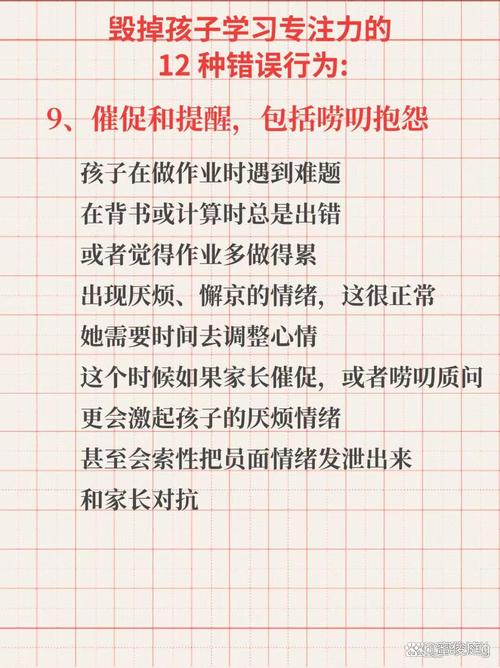 毁掉孩子学习专注力的
12 种错误行为:
9、催促和提醒，包括唠叨抱怨
孩子在做作业时遇到难题
在背书或计算时总是出错
或者觉得作业多做得累
出现厌烦、懈京的情绪，这很正常
她需要时间去调整心情
这个时候如果家长催促，或者唠叨质问
更会激起孩子的厌烦情绪
甚至会索性把员面情绪发泄出来
和家长对抗